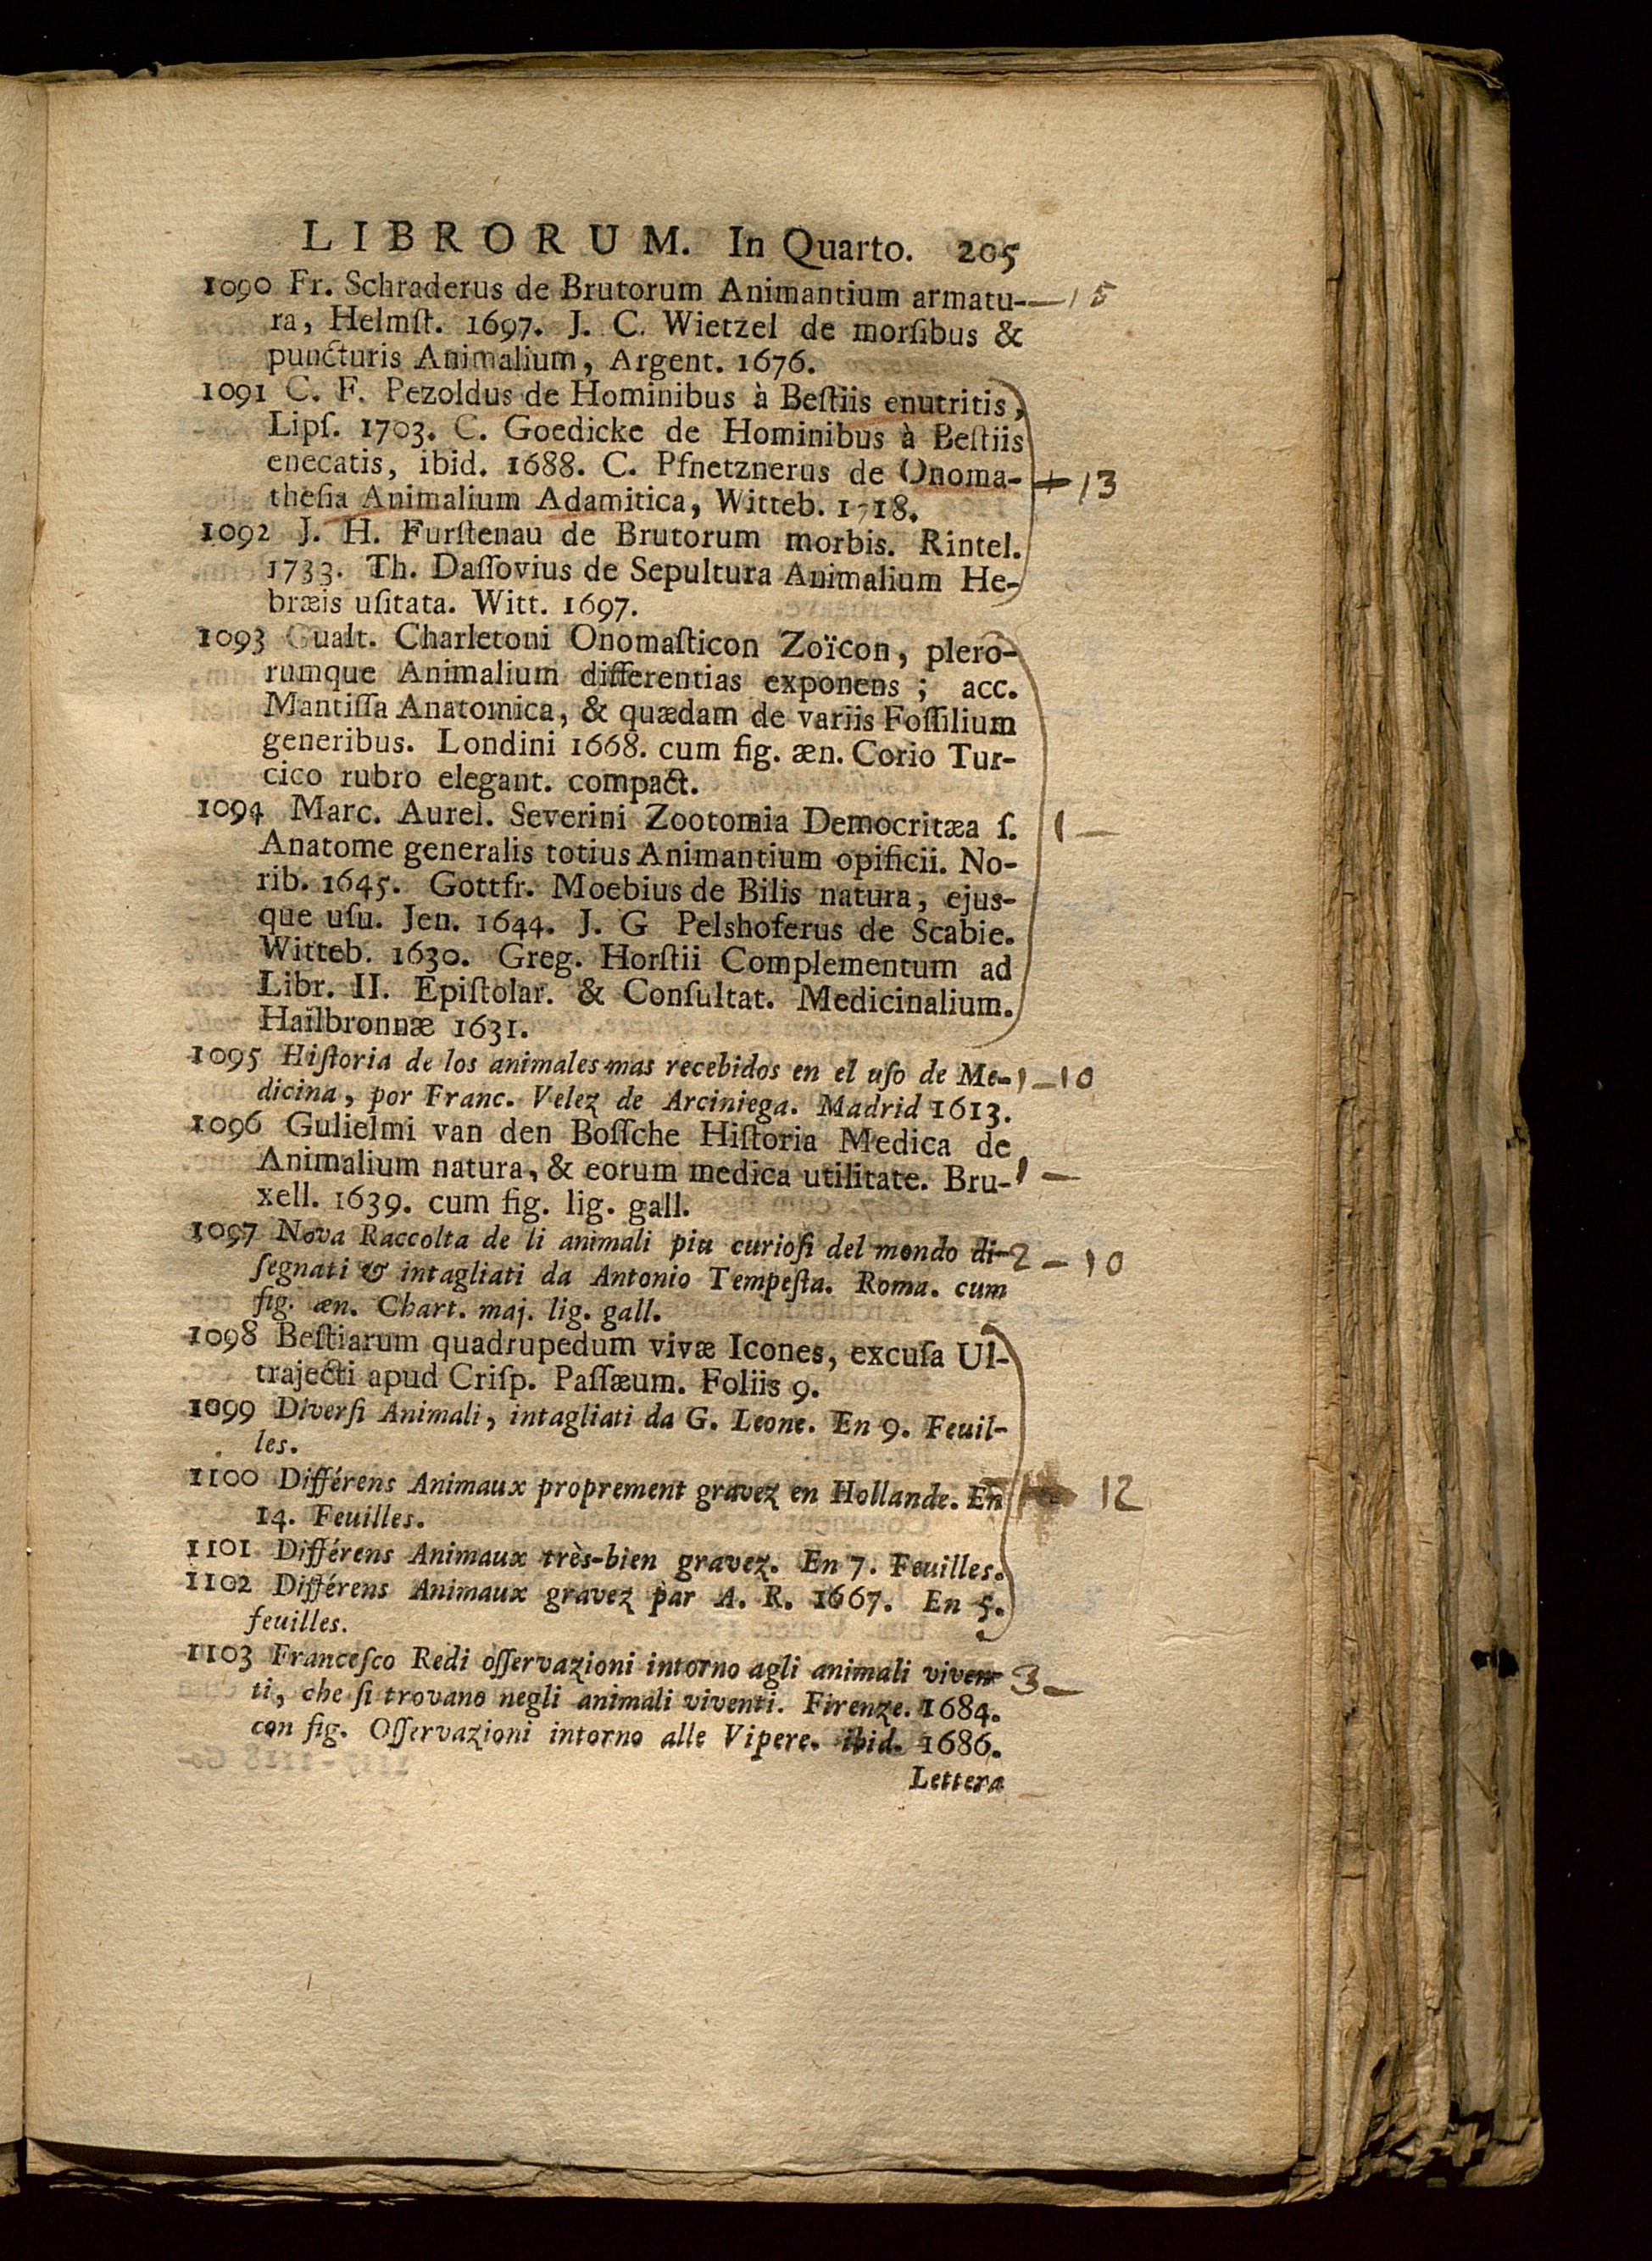 LIBRORUM. In Quarto. 205
1090 Fr. Schraderus de Brutorum Animantium armatu- — 15
ra, Helmſt. 1697. J. C. Wietzel de morſibus &
puncturis Animalium, Argent. 1676.
1091 C. F. Pezoldus de Hominibus à Beſtiis enutritis,
Lipſ. 1703. C. Goedicke de Hominibus à Beſtiis
enecatis, ibid. 1688. C. Pfnetznerus de Onoma- — 13
theſia Animalium Adamitica, Witteb. 1718.
1092 J. H. Furſtenau de Brutorum morbis. Rintel.
1733. Th. Daſſovius de Sepultura Animalium He-
bræis uſitata. Witt. 1697.
1093 Gualt. Charletoni Onomaſticon Zoïcon, plero-
rumque Animalium differentias exponens; acc.
Mantiſſa Anatomica, & quædam de variis Foſſilium
generibus. Londini 1668. cum fig. æn. Corio Tur-
cico rubro elegant. compact.
1094 Marc. Aurel. Severini Zootomia Democritæa ſ. 1 —
Anatome generalis totius Animantium opificii. No-
rib. 1645. Gottfr. Moebius de Bilis natura, ejus-
que uſu. Jen. 1644. J. G Pelshoferus de Scabie.
Witteb. 1630. Greg. Horſtii Complementum ad
Libr. II. Epiſtolar. & Conſultat. Medicinalium.
Hailbronnæ 1631.
1095 Hiſtoria de los animales mas recebidos en el uſo de Me- 1 — 10
dicina, por Franc. Velez de Arciniega. Madrid 1613.
1096 Gulielmi van den Boſſche Hiſtoria Medica de
Animalium natura, & eorum medica utilitate. Bru- 1 —
xell. 1639. cum fig. lig. gall.
1097 Nova Raccolta de li animali piu curioſi del mondo di- 2 — 10
ſegnati & intagliati da Antonio Tempeſta. Roma. cum
fig. æn. Chart. maj. lig. gall.
1098 Beſtiarum quadrupedum vivæ Icones, excuſa Ul-
trajecti apud Criſp. Paſſæum. Foliis 9.
1099 Diverſi Animali, intagliati da G. Leone. En 9. Feuil-
les.
1100 Différens Animaux proprement gravez en Hollande. En 12
14. Feuilles.
1101 Différens Animaux très-bien gravez. En 7. Feuilles.
1102 Différens Animaux gravez par A. R. 1667. En 5.
feuilles.
1103 Franceſco Redi oſſervazioni intorno agli animali viven- 3 —
ti, che ſi trovano negli animali viventi. Firenze. 1684.
con fig. Oſſervazioni intorno alle Vipere. ibid. 1686.
Lettera